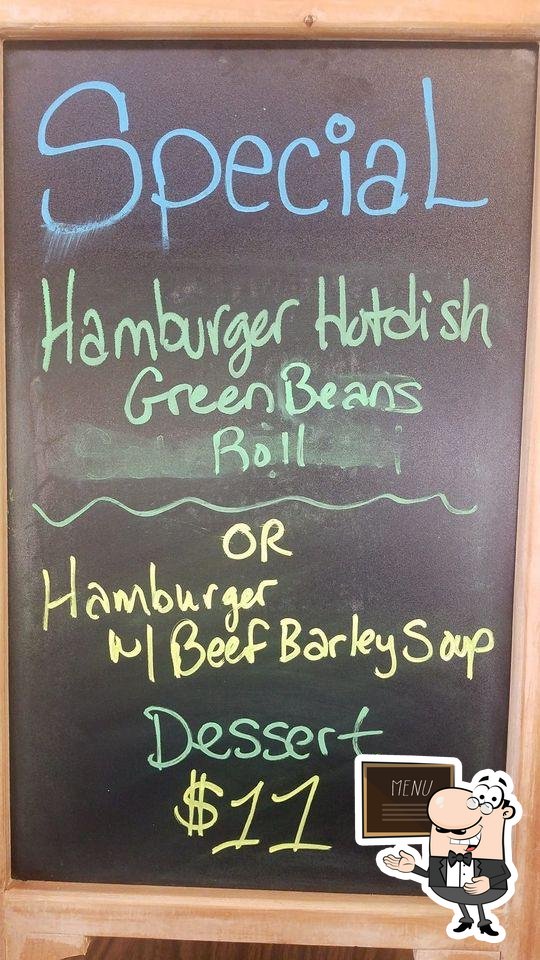 Special
Hamburger Hotdish
Green Beans
Roll
OR
Hamburger
w/ Beef Barley Soup
Dessert
$11
MENU